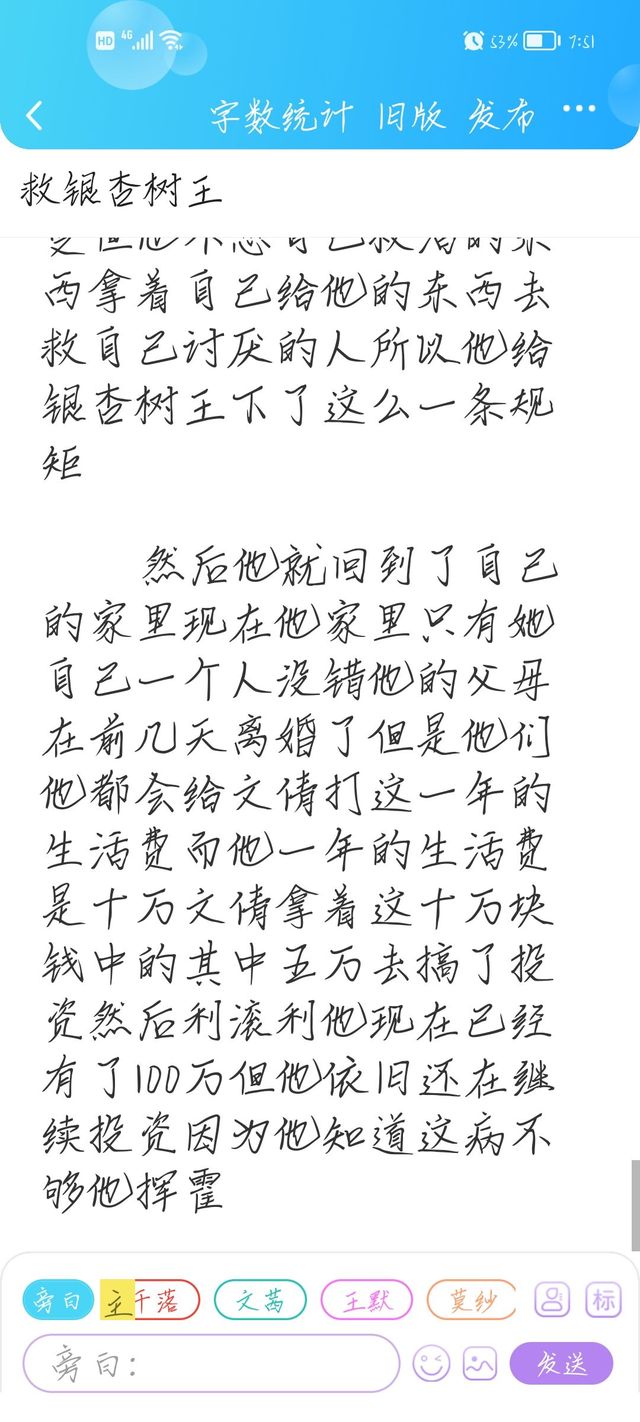 HD 4G 53% 7:51
字数统计 旧版 发布
救银杏树王
西拿着自己给他的东西去
救自己讨厌的人所以他给
银杏树王下了这么一条规
矩
然后他就回到了自己
的家里现在他家里只有她
自己一个人没错他的父母
在前几天离婚了但是他们
他都会给文倩打这一年的
生活费而他一年的生活费
是十万文倩拿着这十万块
钱中的其中五万去搞了投
资然后利滚利他现在已经
有了100万但他依旧还在继
续投资因为他知道这病不
够他挥霍
旁白 主 千落 文茜 王默 莫纱 标
旁白: 发送